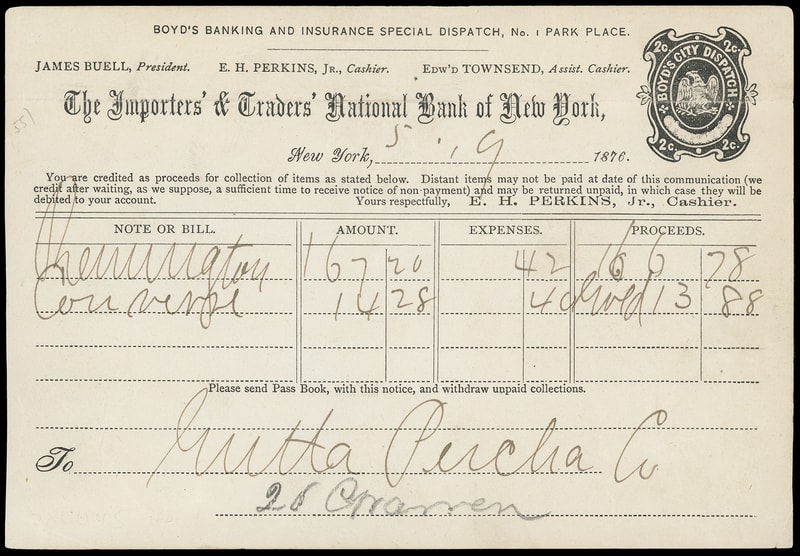 BOYD'S BANKING AND INSURANCE SPECIAL DISPATCH, No. 1 PARK PLACE.
JAMES BUELL, President. E. H. PERKINS, JR., Cashier. EDW'D TOWNSEND, Assist. Cashier.
2c. 2c.
BOYD'S CITY DISPATCH.
2c. 2c.
The Importers' & Traders' National Bank of New York,
New York, 5. 19 1876.
You are credited as proceeds for collection of items as stated below. Distant items may not be paid at date of this communication (we
credit after waiting, as we suppose, a sufficient time to receive notice of non-payment) and may be returned unpaid, in which case they will be
debited to your account. Yours respectfully, E. H. PERKINS, Jr., Cashier.
NOTE OR BILL. AMOUNT. EXPENSES. PROCEEDS.
167 20 42 166 78
Converse 14 28 40 Gold 13 88
Please send Pass Book, with this notice, and withdraw unpaid collections.
To Gutta Percha Co
Warren